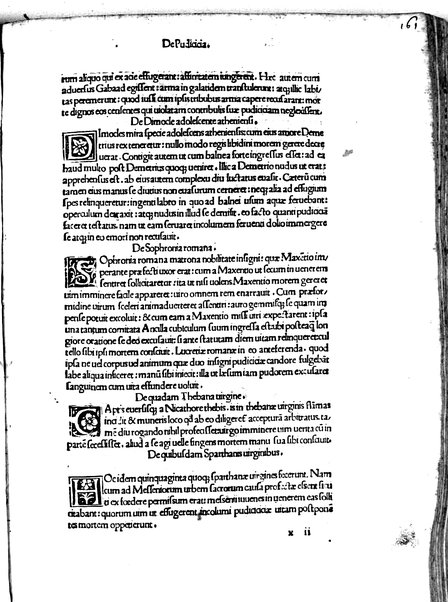 161
De Pudicicia.
irum aliquo qui ex acie effugerant: affinitatem iungerent. Hec autem cum
aduersus Gabaad egissent: arma in galatidem transtulerunt: atq; illic labi
tas peremerunt: quod iussi cum ipsis tribubus arma capere recusarant: mor
te dignos eos censentes qui uiolatam contribulis suæ pudiciciam neglexissent.
De Dimocle adolescente atheniensi.
Dimocles mira specie adolescens atheniensis: cum eius amore Deme
trius rex teneretur: nullo modo regis libidini morem gerere decre
uerat. Contigit autem ut cum balnea forte ingressus esset: ad ea
haud multo post Demetrius quoq; ueniret. Illic a Demetrio nudus ut erat
apprehensus est. ab eius autem complexu diu luctatus euasit. Cæterũ cum
tamen eius manus se diutius non euasurum cerneret: neq; alia ad effugium
spes relinqueretur: ingenti labro in quo ad balnei usum aque feruebant:
operculum detraxit: atq; nudus in illud se demisit. eo facto quanti pudiciciã
faceret testatus. nam ut eam seruaret incolumem feruenti dolio immergere
se atq; in eo emori non recusauit.
De Sophronia romana.
Sophronia romana matrona nobilitate insigni: quæ Maxẽtio im
perante præfecti uxor erat: cum a Maxentio ut secum in uenerem
sentiret sollicitaretur: ita ut nisi uolens Maxentio morem gereret
uim imminere facile appareret: uiro omnem rem enarrauit. Cum præ
 formidine uirum sceleri animaduerteret assentiri: auro gemmisq; se quam im
pense potuit excoluit: & cum eam a Maxentio missi uiri expectarent: ipsa
una tantum comitata Ancilla cubiculum suum ingressa est: ubi posteaq̃ lon
giore oratione se deo excusauit: si ante statutam diem uitam relinqueret cul
tello sibi ipsi mortem consciuit. Lucretiæ romanæ in eo anteferenda. quod
ipsa ne uel corpus uel animum quæ duo insigni pudiciciæ candore fulgebãt
labe aliqua inficeret: manũ sibi iniecit: illa ut læsum iam pudorem excusaret
sanguinem cum uita effundere uoluit.
De quadam Thebana uirgine.
Captis euersisq; a Nicathore thebis. is in thebanæ uirginis flãmas
incidit & muneris loco qd̃ ab eo diligeret acceptũ arbitratus. ta
mẽ diu rogando nihil profecisset uirgo imminere uim uerita cũ in
partẽ secessisset. aliud a se agi uelle fingens mortem manu sua sibi consciuit.
De quibusdam Sparthanis uirginibus.
Hoc idem quinquaginta quoq; sparthanæ uirgines fecerunt. Nam
cum ad Messeniorum urbem sacrorum causa profectæ essent si
ti ex foedere permissum erat: messenii iuuenes in uenerem eas solli
citabant: quorum uim ut effugerent incolumi pudiciciæ uitam postponẽ
tes mortem oppetierunt.
x ii